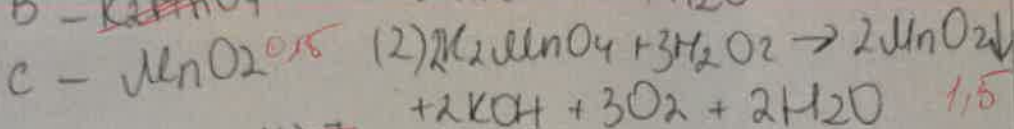 B -
C - MnO2 0,5 (2) 2K2MnO4 + 3H2O2 → 2MnO2↓
+2KOH + 3O2 + 2H2O 1,5